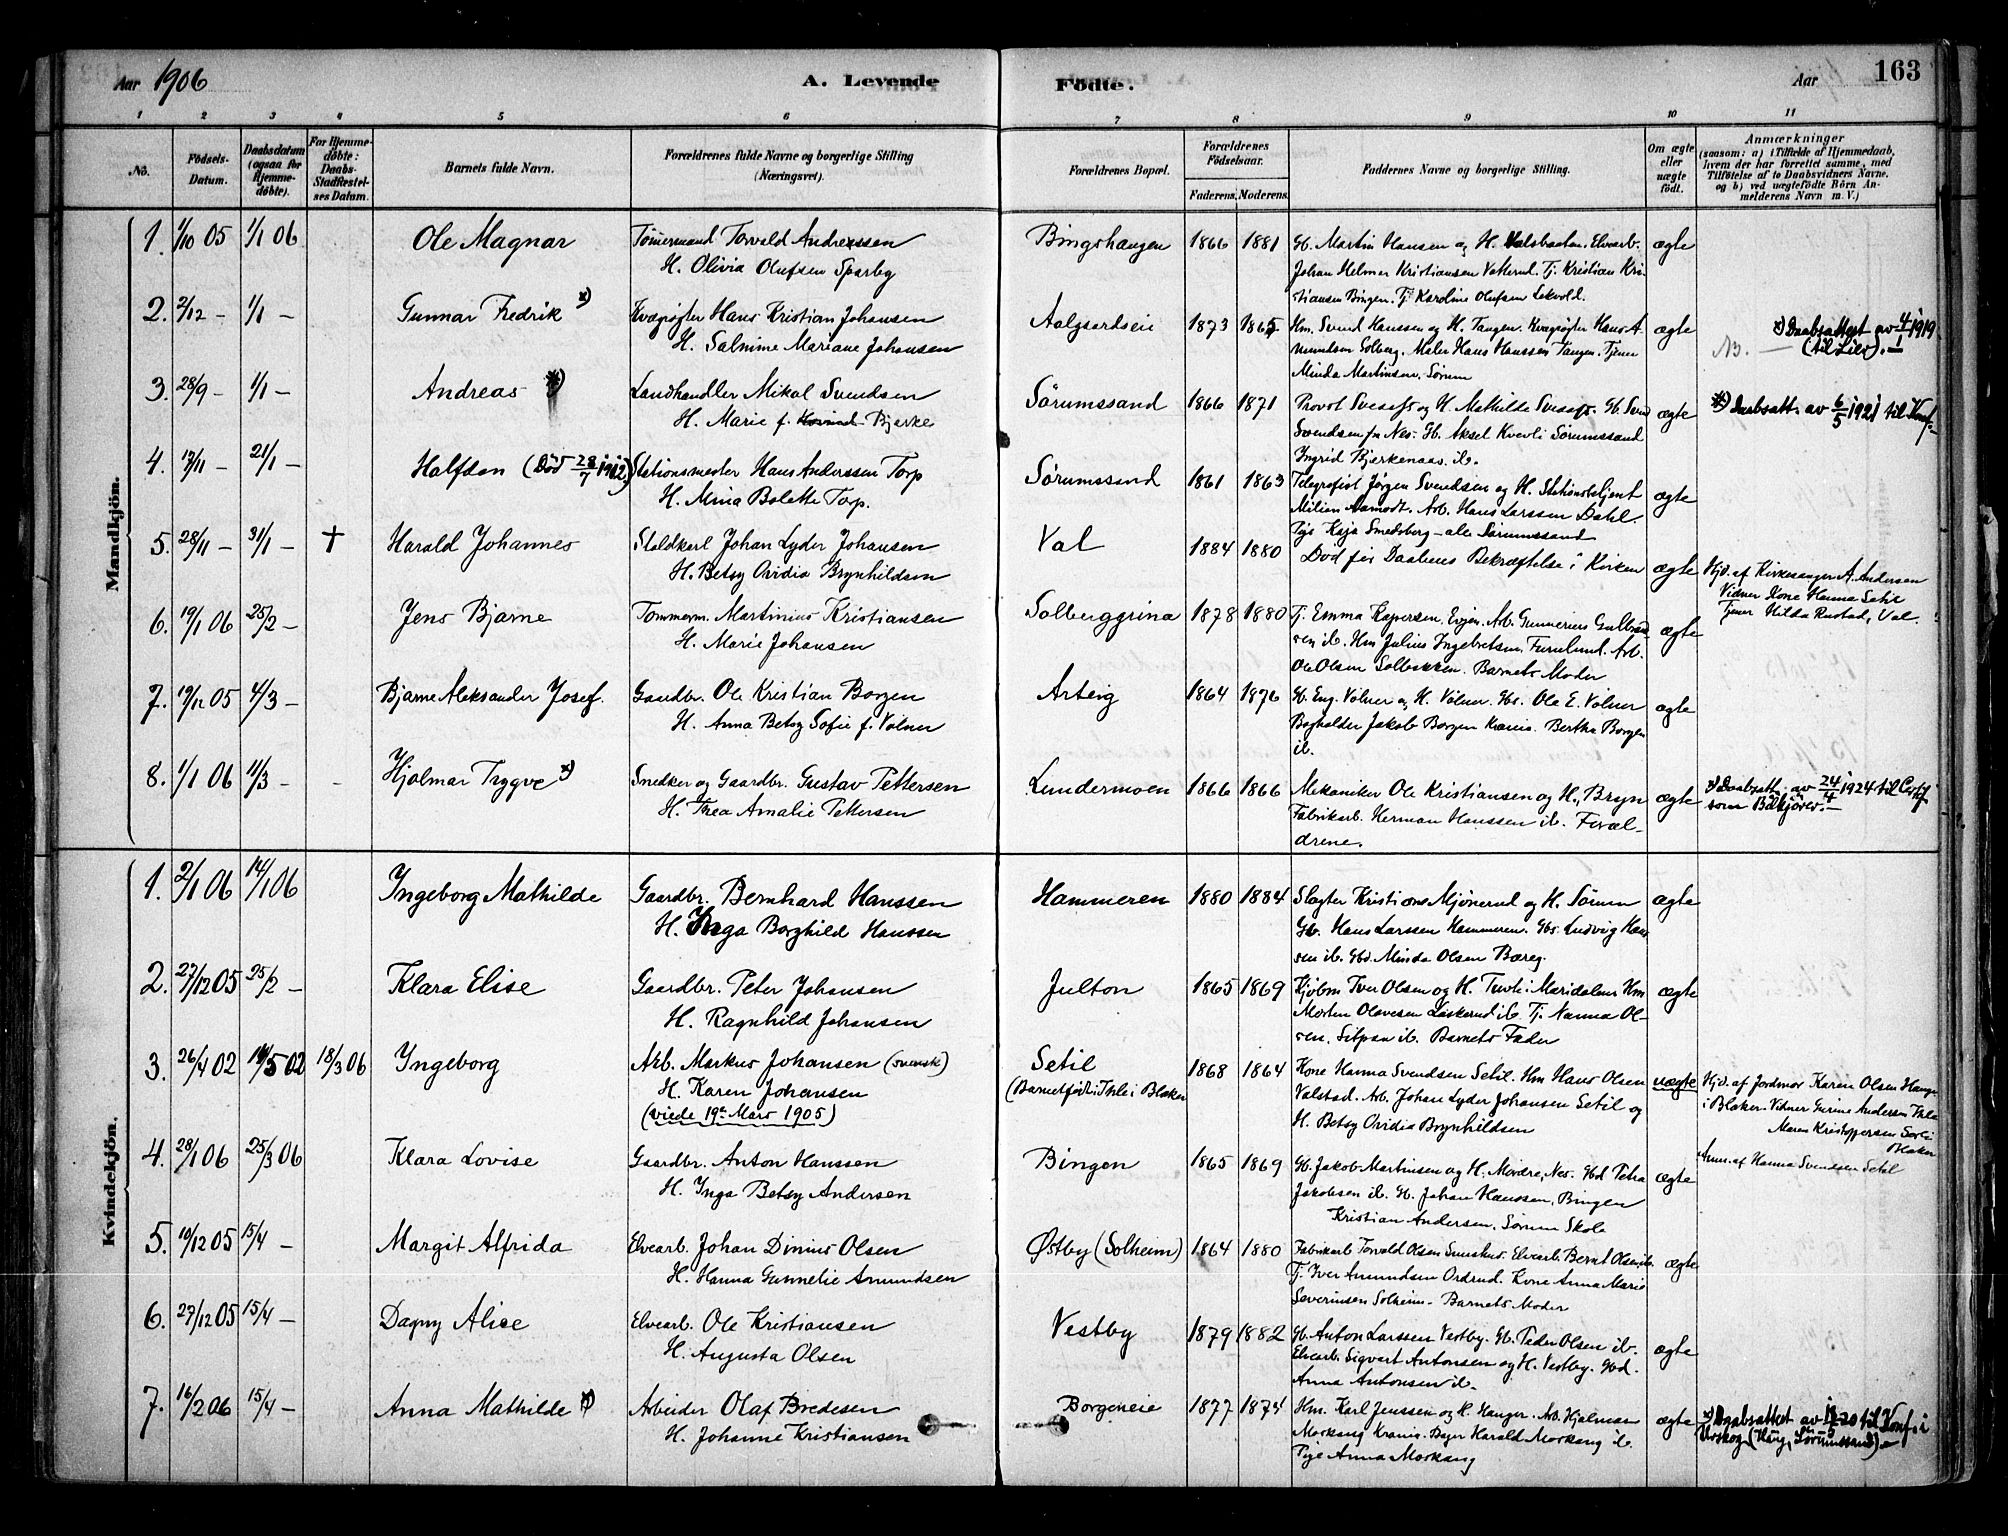 Aar 1906
A. Levende Fødte.
Aar
163
1 2 3 4 5 6 7 8 9 10 11
No.
Fødsels-Datum.
Daabsdatum (ogsaa for Hjemme-døbte).
For Hjemme-døbte: Daabs-Stadfæstel-ses Datum.
Barnets fulde Navn.
Forældrenes fulde Navne og borgerlige Stilling (Næringsvei).
Forældrenes Bopæl.
Forældrenes Fødselsaar.
Faderens. Moderens.
Faddernes Navne og borgerlige Stilling.
Om ægte eller uægte født.
Anmærkninger
(saasom: a) i Tilfælde af Hjemmedaab, hvem der har forrettet samme, med Tilføielse af to Daabsvidners Navne, og b) ved uægtefødte Börn Anmelderens Navn m. V.)
Mandkjön.
1. 1/10 05 1/1 06 Ole Magnar Tømmermand Torvald Andreassen Bingshaugen 1866 1881 Gb. Martin Hansen og H. Valsbraaten. Elvearb. ægte
H. Olivia Olufsen Sparby Johan Helmer Kristiansen Vatterud. Tj. Kristian Kri-
stiansen Bingen. Tj. Karoline Olufsen Lekvold.
2. 2/12 – 1/1 – Gunnar Fredrik *) Kvægrøgter Hans Kristian Johansen Aalgaardseie 1873 1865 Hm. Svend Hanssen og H. Tangen. Kvægrøgter Hans A- ægte *) Daabsattest av 4/1 1919
H. Salmine Mariane Johansen mundsen Solberg. Maler Hans Hanssen Tangen. Tjener (til Liev).
Minda Martinsen, Sørum
3. 28/9 – 1/1 – Andreas *) Landhandler Mikal Svendsen Sørumssand 1866 1871 Provst Svesefs og H. Mathilde Svesefs. Gb. Svend ægte *) Daabsatt. av 6/5 1921 til Konf.
H. Marie f. Bjerke Svendsen fra Nes. Gb. Aksel Kverli Sørumssand
Ingrid Bjerkenaas. ib.
4. 17/11 – 21/1 – Halfdan (Død 28/7 1912) Stationsmester Hans Anderssen Torp Sørumssand 1861 1863 Telegrafist Jørgen Svendsen og H. Stationsbetjent ægte
H. Mina Bolette Torp. Milian Aamodt. Arb. Hans Larssen Dahl.
Pige Kaja Smedsberg – alle Sørumssand
5. 28/11 – 31/1 – † Harald Johannes Staldkarl Johan Lyder Johansen Val 1884 1880 Død før Daabens Bekræftelse i Kirken ægte Hjd. af Kirkesanger A. Andersen
H. Betsy Ovidia Brynhildsen Vidner Kone Hanna Setil
Tjener Hilda Rustad, Val.
6. 19/1 06 25/2 – Jens Bjarne Tømmerm. Martinius Kristiansen Solberggrina 1878 1880 Tj. Emma Kaspersen, Evjen. Arb. Gunnerius Gulbrand- ægte
H. Marie Johansen sen ib. Hm Julius Ingebretsen Furulund. Arb.
Ole Olsen Solbakken. Barnets Moder
7. 19/12 05 4/3 – Bjarne Aleksander Josef. Gaardbr. Ole Kristian Borgen Arteig 1864 1876 Gb. Eng. Volner og H. Volner. Gbs. Ole E. Volner ægte
H. Anna Betsy Sofie f. Volner Bogholder Jakob Borgen Krania. Bertha Borgen
ib.
8. 1/1 06 11/3 – Hjalmar Trygve *) Snedker og Gaardbr. Gustav Pettersen Lundermoen 1866 1866 Mekaniker Ole Kristiansen og H., Bryn ægte *) Daabsatt. av 24/4 1924 til Certif.
H. Thea Amalie Pettersen Fabrikarb. Herman Hanssen ib. Foræl- som Bilkjører.
drene.
Kvindekjön.
1. 2/1 06 14/1 06 Ingeborg Mathilde Gaardbr. Bernhard Hanssen Hammeren 1880 1884 Slagter Kristian Mjønerud og H. Sørum ægte
H. Inga Borghild Hanssen Gb. Hans Larssen Hammeren. Gbs. Ludvig Hans-
sen ib. Gbd. Minda Olsen Bæreg.
2. 27/12 05 25/2 – Klara Elise Gaardbr. Peter Johansen Julton 1865 1869 Kjøbm Iver Olsen og H. Maridalen Hm ægte
H. Ragnhild Johansen Morten Olavesen Løskerud ib. Tj. Nanna Ol-
sen. Sitpan ib. Barnets Fader
3. 26/4 02 19/5 02 18/3 06 Ingeborg Arb. Markus Johansen (svensk) Setil 1868 1864 Kone Hanna Svendsen Setil. Hm Hans Olsen uægte Hjd. af Jordmor Karen Olsen Hauge
H. Karen Johansen (Barnet født i Thle i Blaker Valstad. Arb. Johan Lyder Johansen Setil og i Blaker. Vidner Gurine Andersen Thle
(viede 19de Mars 1905) H. Betsy Ovidia Brynhildsen Maren Kristoffersen Sorli
Blaker
Anm. af Hanna Svendsen Setil
4. 28/1 06 25/3 06 Klara Lovise Gaardbr. Anton Hanssen Bingen 1865 1869 Gb. Jakob Martinsen og H. Mordre, Nes. Gbd Petra ægte
H. Inga Betsy Andersen Jakobsen ib. Gb. Johan Hanssen, Bingen
Kristian Andersen, Sørum Skole
5. 10/12 05 15/4 – Margit Alfrida Elvearb. Johan Dinius Olsen Østby (Solheim) 1864 1880 Fabrikarb Torvald Olsen. Elvearb. Bernt Olsen ib. ægte
H. Hanna Gunnelie Amundsen Tj. Iver Amundsen Ordrud. Kone Anna Marie
Severinsen Solheim. Barnets Moder
6. 27/12 05 15/4 – Dagny Alice Elvearb. Ole Kristiansen Vestby 1879 1882 Gb. Anton Larssen Vestby. Gb. Peder Olsen ib. ægte
H. Augusta Olsen Elvearb. Sigvart Antonsen og H. Vestby. Gbd.
Anna Antonsen ib.
7. 16/2 06 15/4 – Anna Mathilde *) Arbeider Olaf Bredesen Borgeneie 1877 1874 Hm. Karl Jenssen og H. Hanger. Arb. Hjalmar ægte *) Daabsattest av 20 til Konf i
H. Johanne Kristiansen Morkang Krania. Bager Harald Morkang ib. Urskog (Haug, Sørumssand).
Pige Anna Morkang